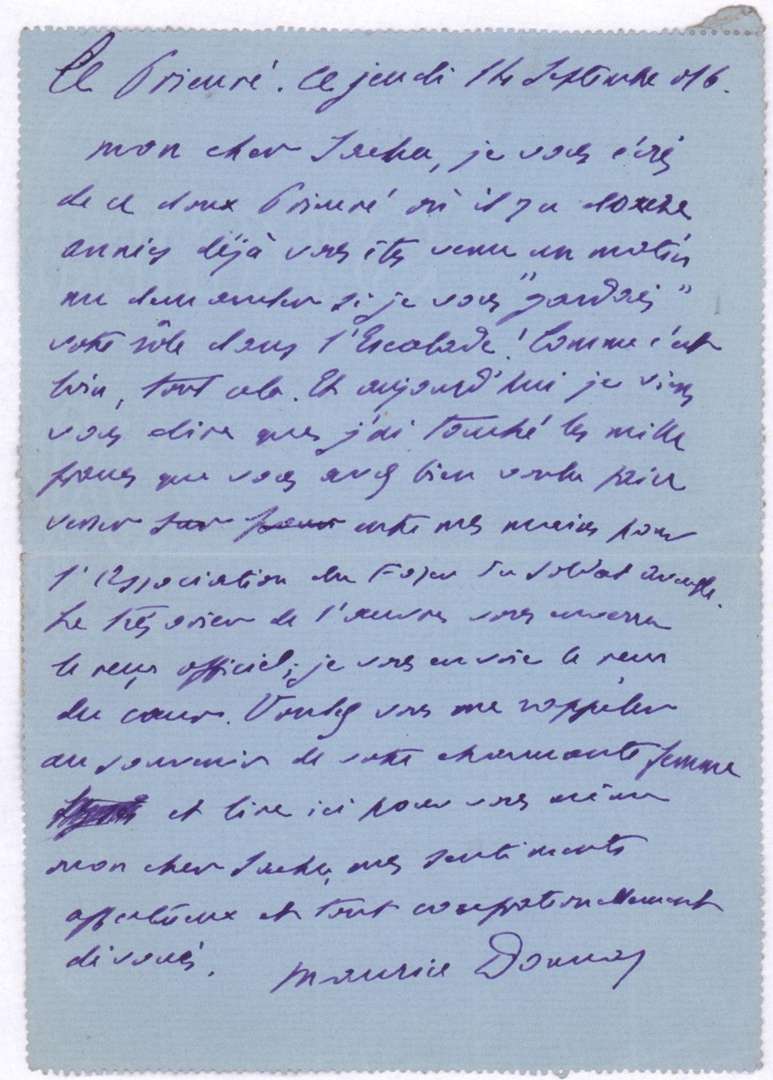 Le Prieuré. Ce jeudi 14 Septembre 016.
mon cher Sacha, je vous écris
de ce doux Prieuré où il y a douze
années déjà vous êtes venu un matin
me demander si je vous "gardais"
votre rôle dans l'Escalade! Comme c'est
loin, tout cela. Et aujourd'hui je viens
vous dire que j'ai touché les mille
francs que vous avez bien voulu faire
verser sur pour entre mes mains pour
l'Association du Foyer du Soldat aveugle.
Le trésorier de l'œuvre vous enverra
le reçu officiel; je vous envoie le reçu
du cœur. Voulez vous me rappeler
au souvenir de votre charmante femme
et lire ici pour vous même
mon cher Sacha, mes sentiments
affectueux et tout confraternellement
dévoués.
Maurice Donnay